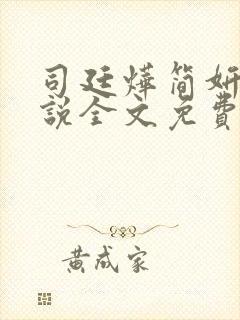 司廷烨简妍
说全文免费
黄成家